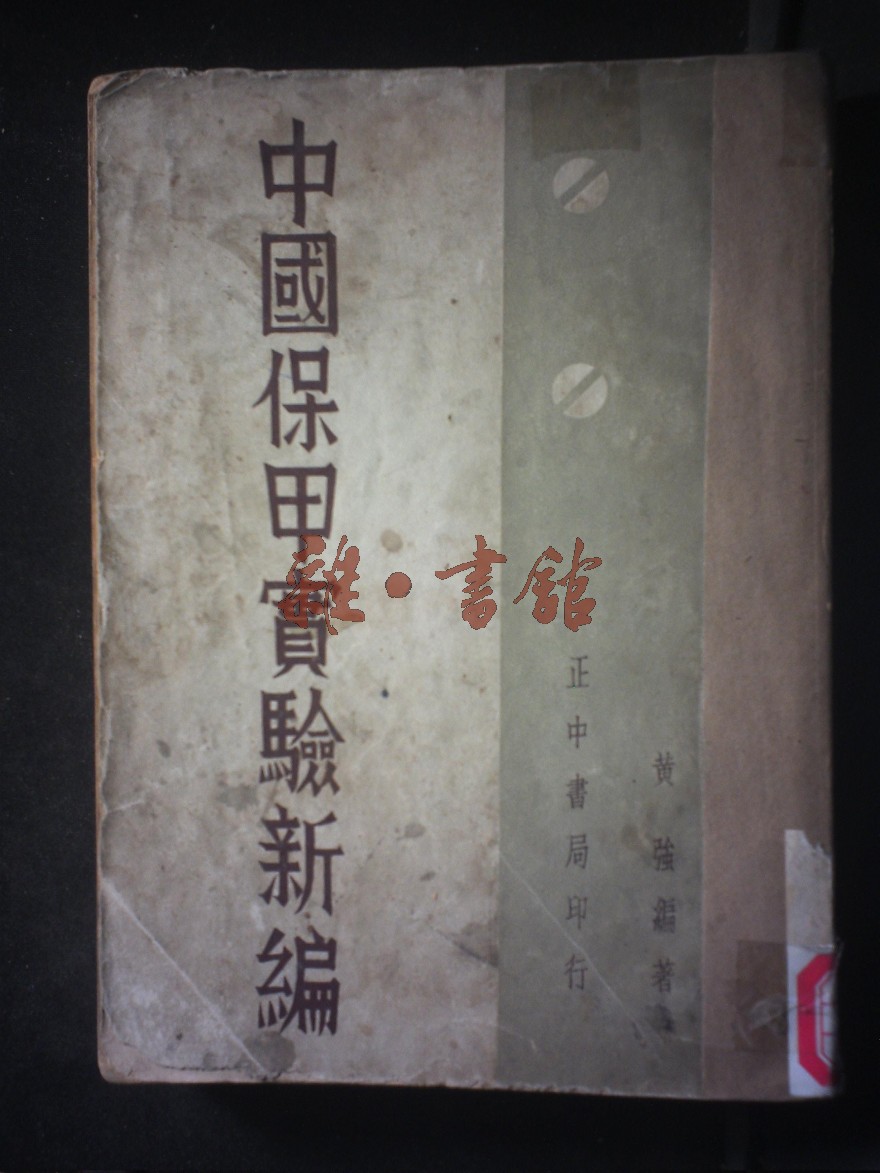 黄強編著
正中書局印行
中國保甲實驗新編
雜·書館